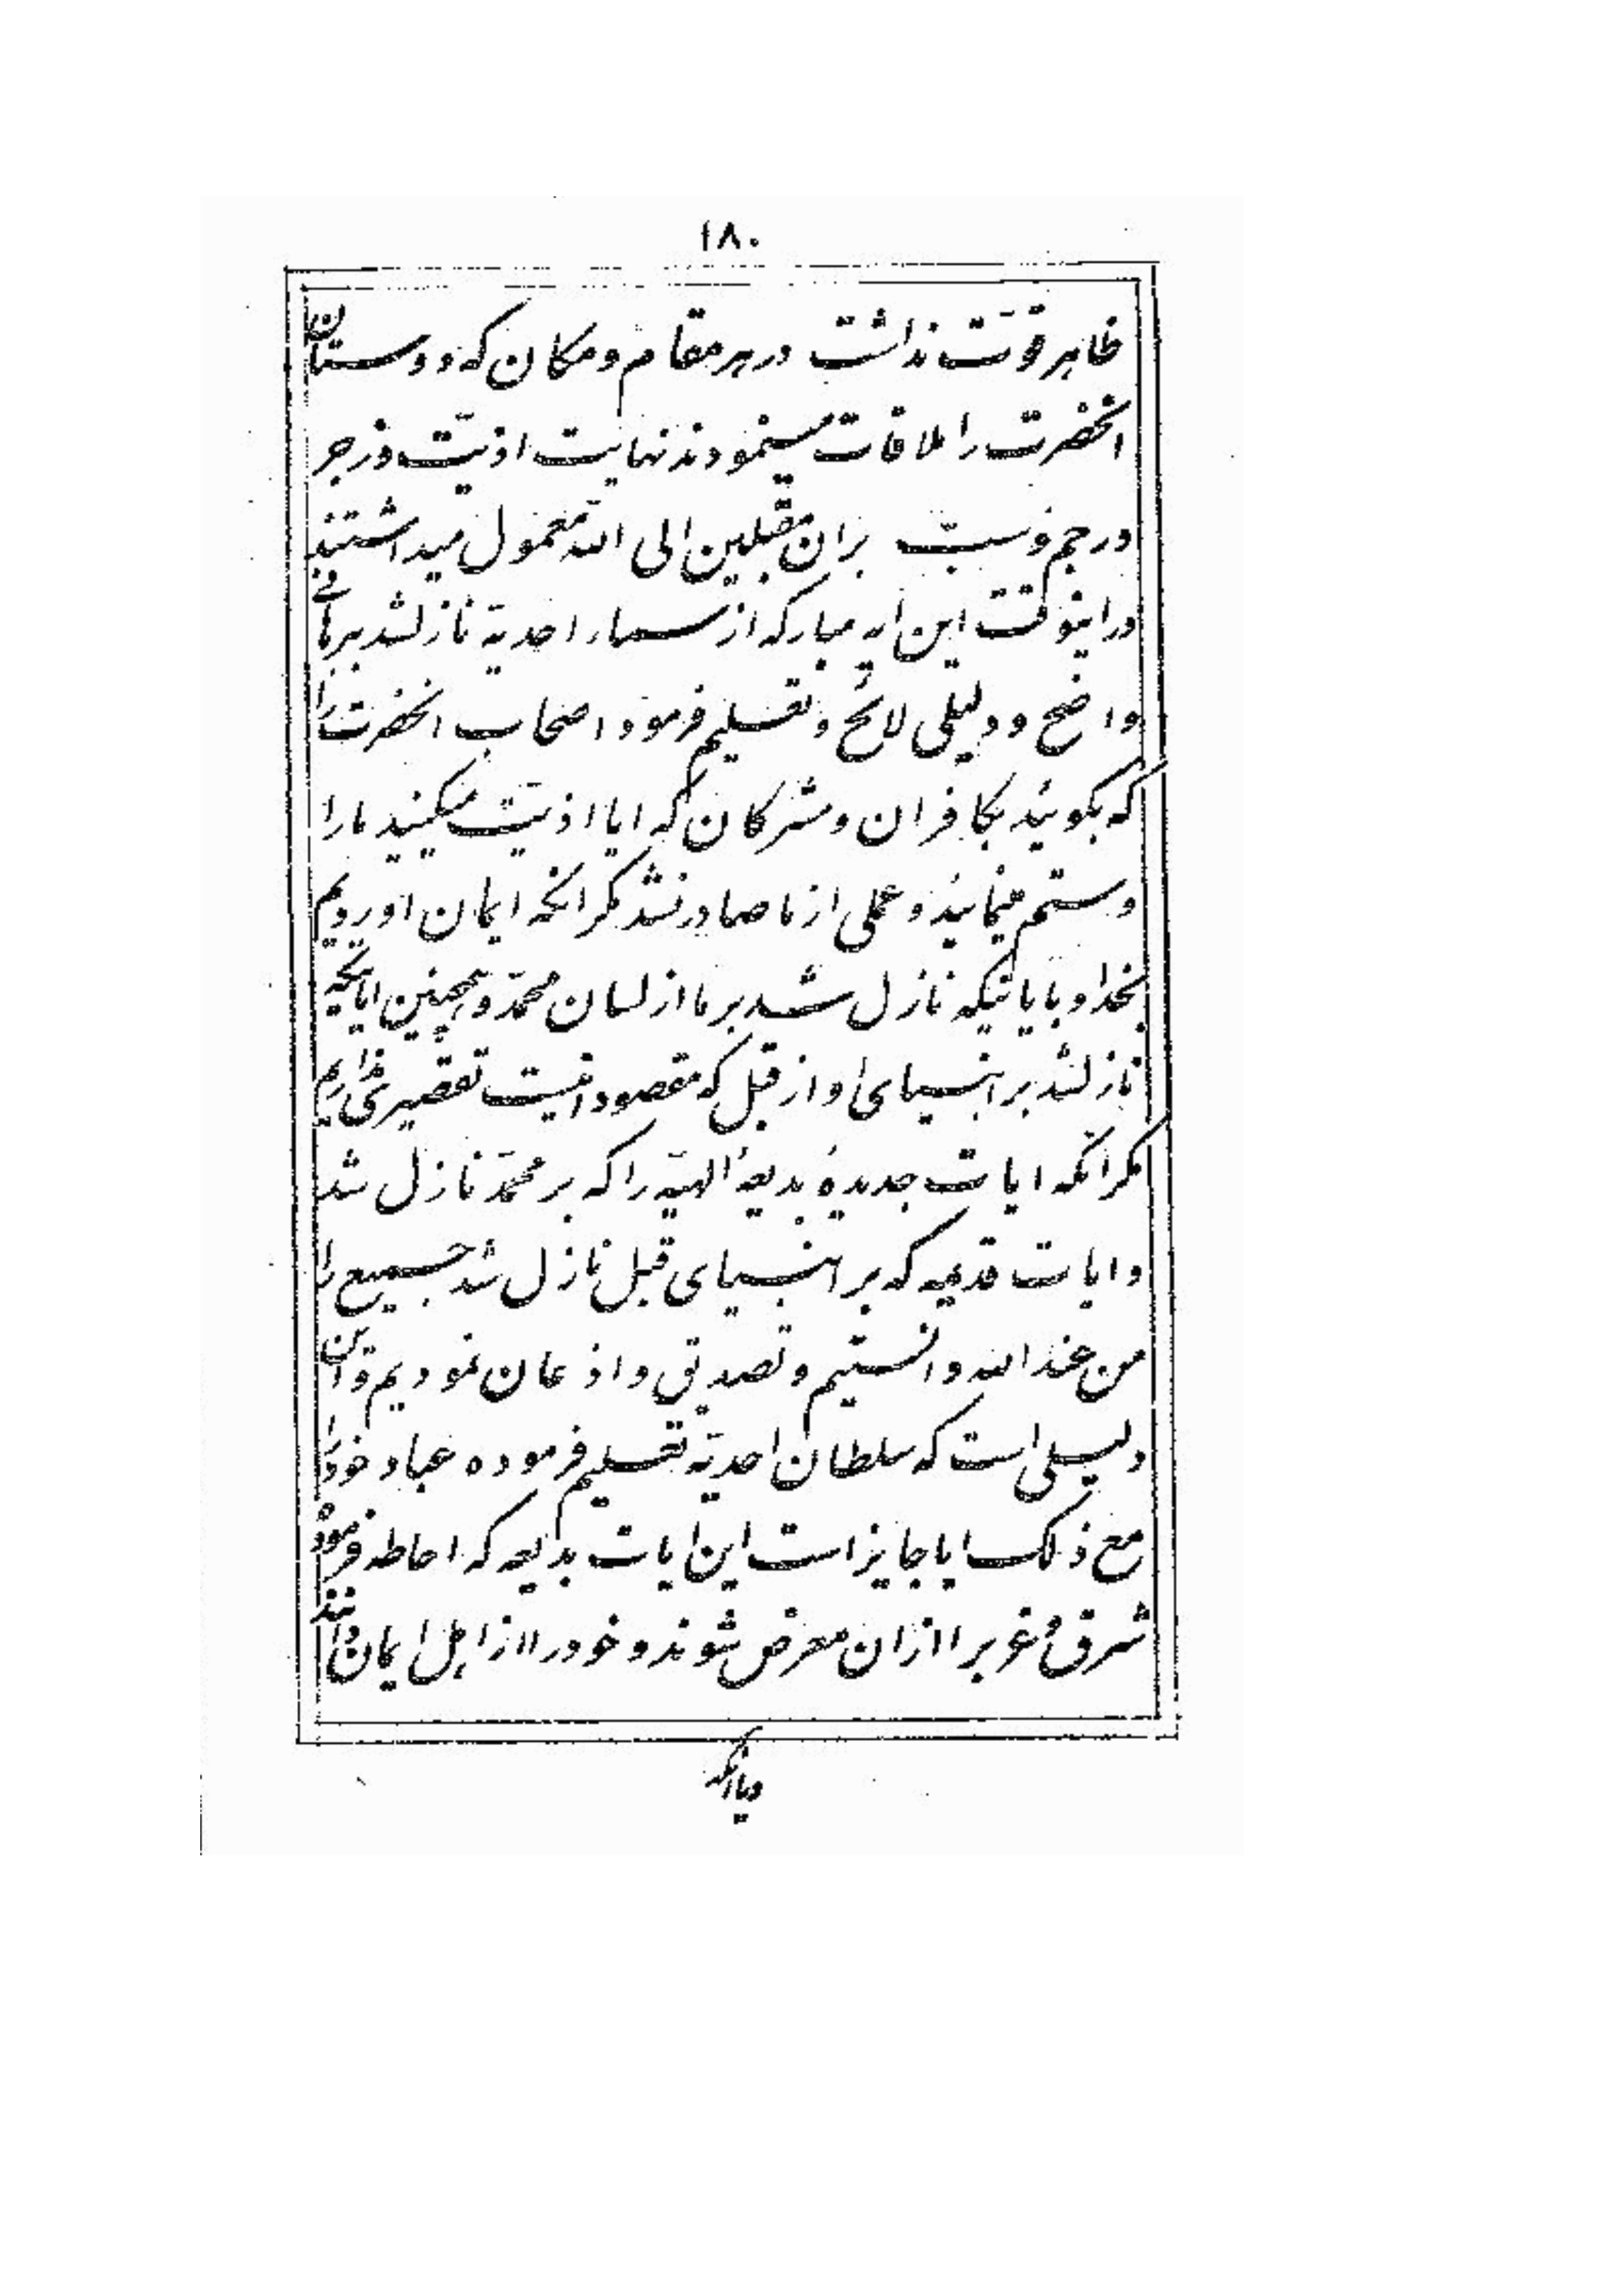 ۱۸۰
ظاهر قوّت نداشت در هر مقام و مکان که دوستان
انحضرت را ملاقات مینمودند نهایت اذیّت و زجر
و رجم و سبّ بران مقبلین الی اللّه معمول میداشتند
در اینوقت این ایه مبارکه از سماء احدیّه نازلشد ببرهانی
واضح و دلیلی لائح و تعلیم فرمود اصحاب انحضرت را
که بگوئید بکافران و مشرکان که ایا اذیّت میکنید ما را
و ستم مینمائید و عملی از ما صادر نشد مگر انکه ایمان اوردیم
بخدا و باياتیکه نازل شد بر ما از لسان محمّد و همچنین ایاتیکه
نازلشد بر انبیای او از قبل که مقصود اینست تقصیری نداریم
مگر انکه ایات جدیدهٔ بدیعهٔ الهیّه را که بر محمّد نازل شد
و ایات قدیمه که بر انبیای قبل نازل شد جمیع را
من عند اللّه دانستیم و تصدیق و اذعان نمودیم و این
دلیلی است که سلطان احدیّه تعلیم فرموده عباد خود را
مع ذلک ایا جایز است این ایات بدیعه که احاطه فرموده
شرق و غرب را ازان معرض شوند و خود را از اهل ایمان دانند
و یا انکه